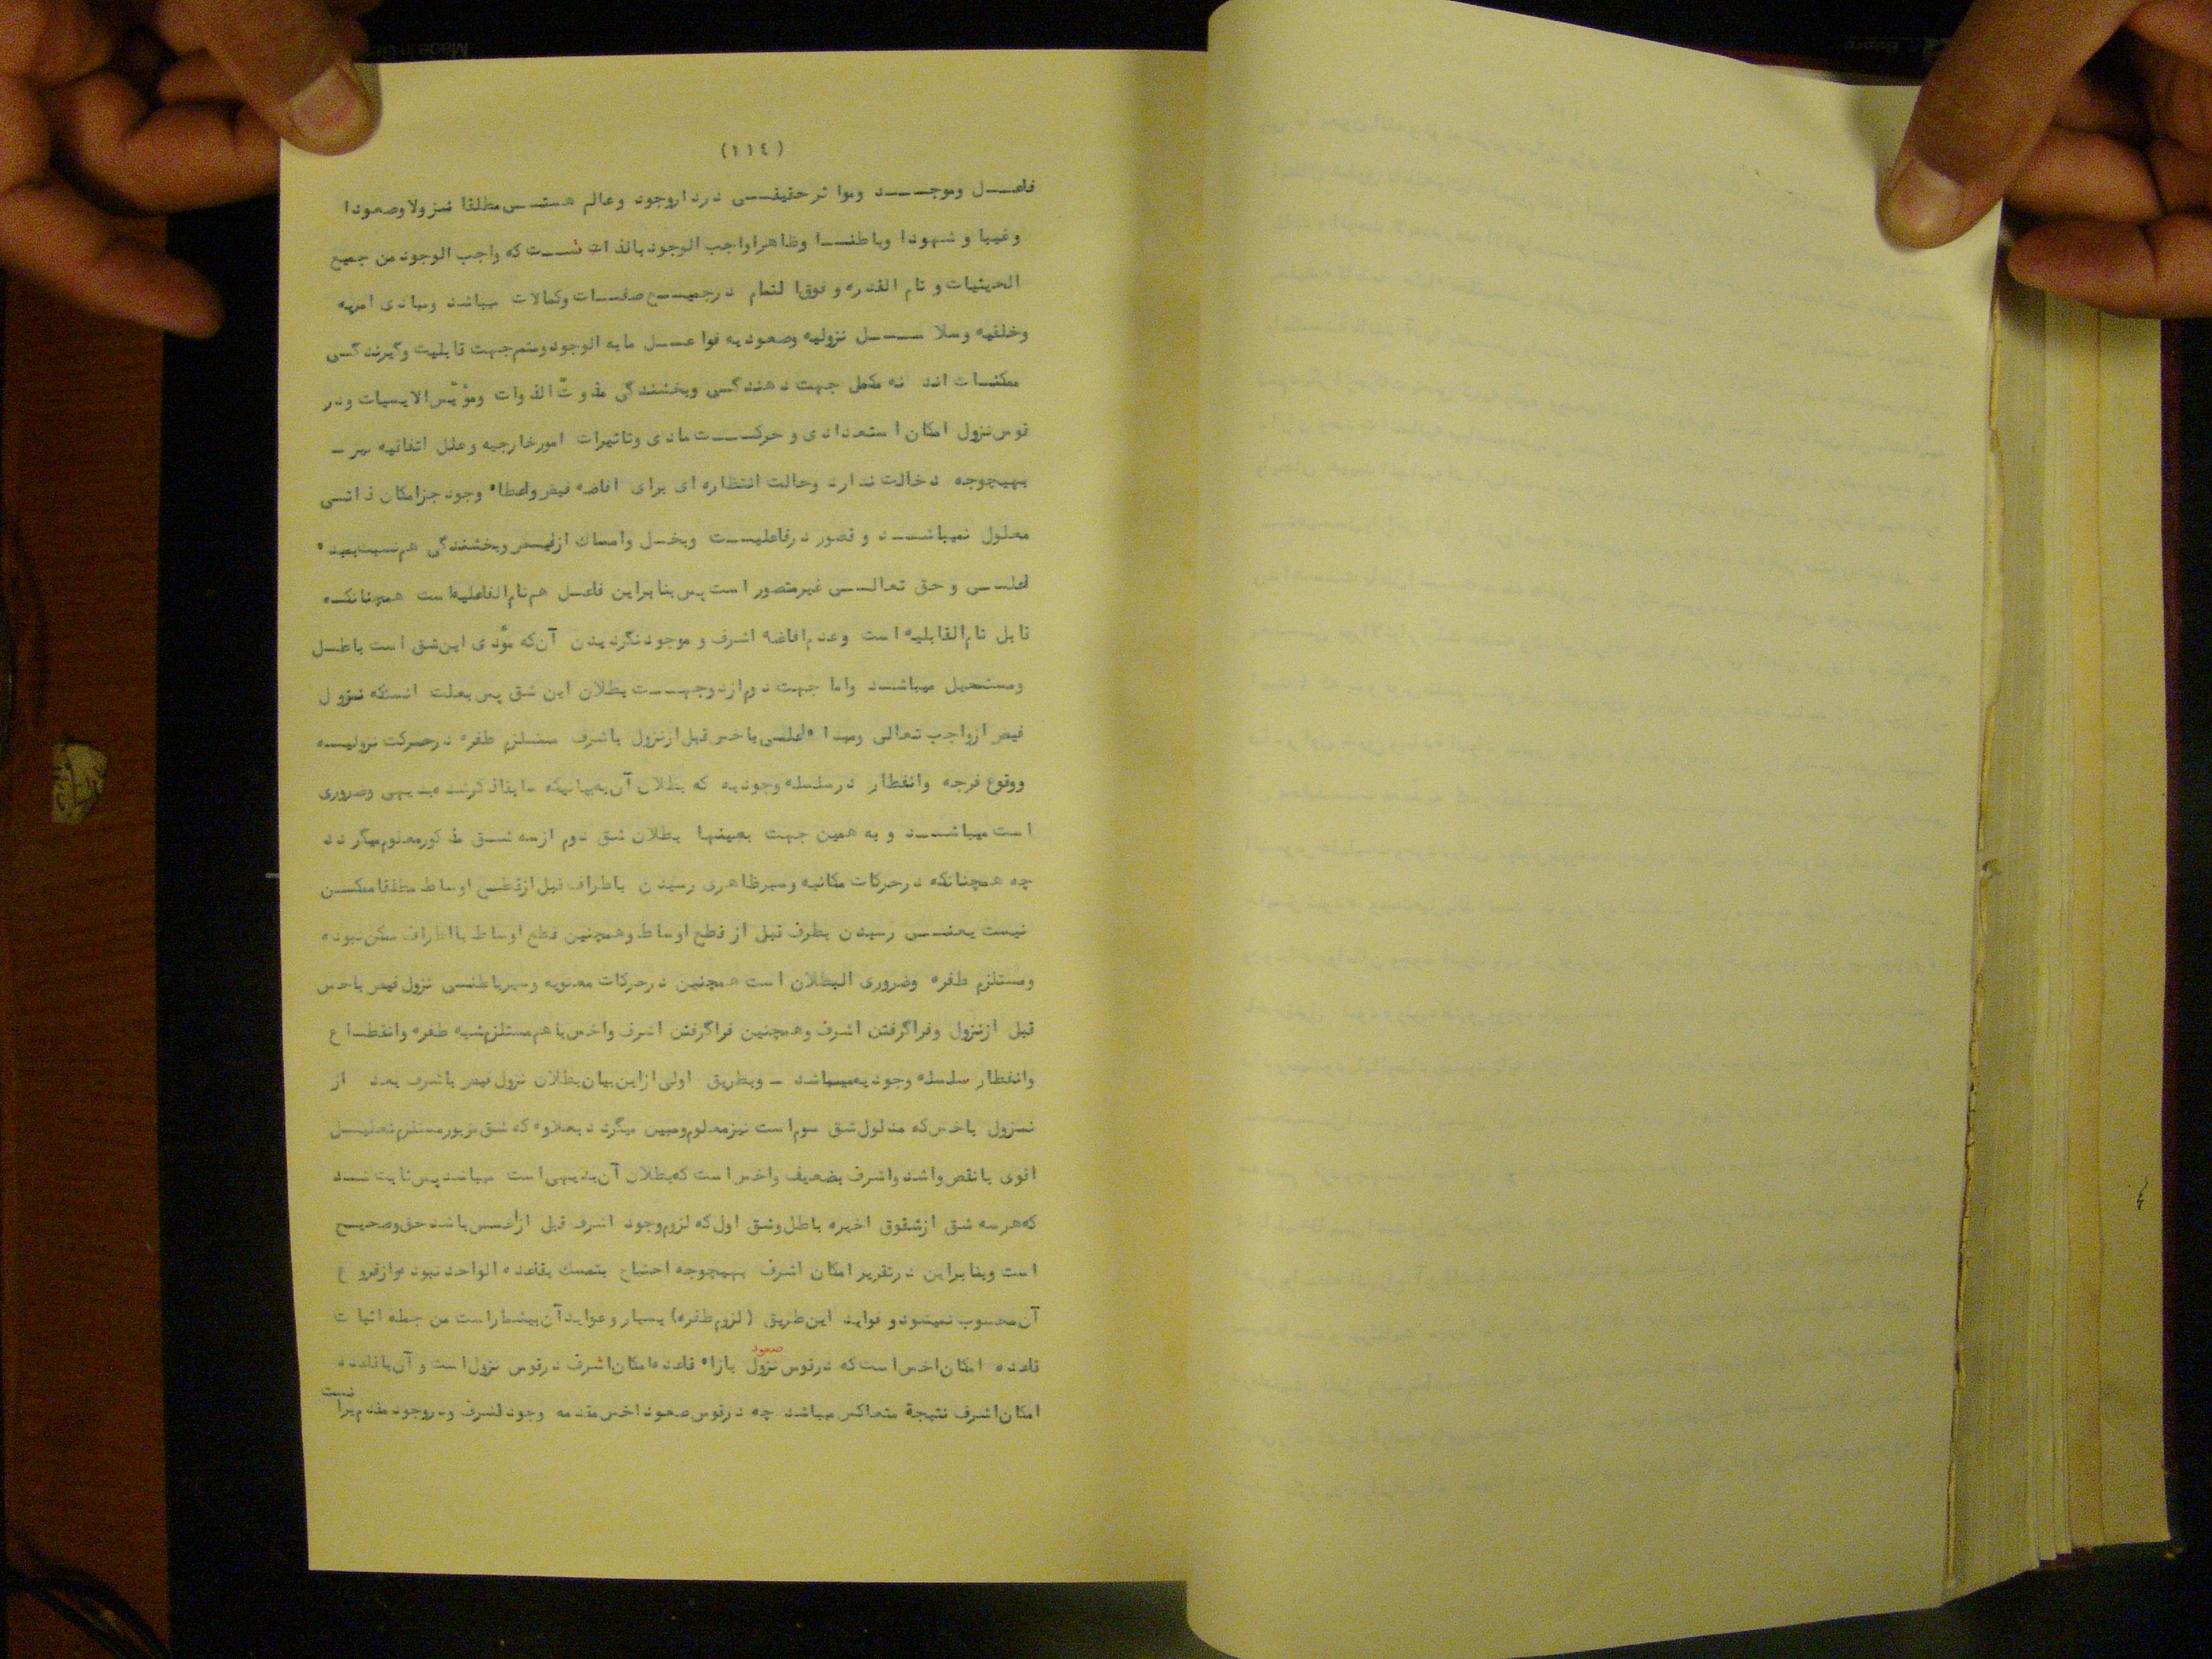 (١١٤)
فاعـــل وموجـــد وموا ثر حقیقـــی درد اروجود و عالم هستـــی مطلقا نـزولا وصعود ا
وغیبا و شهودا وباطنـــا وظاهرا واجب الوجود بالذ ات است که واجب الوجود من جمیع
الحیثیات و تام القدره و فوق التمام درجمیـــع صفـات وکمالات میباشد ومبادی امریه
وخلقیه وسلا ســـل نزولیه وصعودیه فواعـــل مابه الوجود ومتمم جهت قابلیت وگیرند گـی
ممکنـات اند نه مکمل جهت د هند گـی وبخشندگی مذوّت الذوات ومؤیّس الایسیات ودر
قوس نزول امکان ا ستعدادی و حرکـــت مادی وتاثیرات امورخارجیه وعلل اتفاقیه سر —
بهیچوجه دخالت ندارد وحالت انتظاره ای برای افاضه فیض واعطاء وجود جز امکان ذ اتـی
معلول نمیباشـــد و قصور درفاعلیـــت وبخـل وامساک ازفیـض وبخشندگی هم نسبت بمبدء
اعلـــی و حق تعالـــی غیرمتصور است پس بنابراین فاعـل هم تام الفاعلیه است همچنانکـه
قابل تام القابلیه است وعدم افاضه اشرف و موجود نگردیدن آن که مؤدی این شق است باطـل
ومستحیل میباشـد واما جهت دوم از دوجهـــت بطلان این شق پس بعلت انستکه نـزول
فیض ازواجب تعالی ومبدا ء اعلـی باخس قبل از نزول باشرف مستلزم طفره درحرکت نزولیـه
ووقوع فرجه وانفطار درسلسله وجودیه که بطلان آن به بیانیکه سابقا ذ کر شد بدیهی وضروری
است میباشـــد و به همین جهت بعینها بطلان شق دوم ازسه شـق مذ کور معلوم میگر دد
چه همچنانکه درحرکات مکانیه وسیرظاهری رسیدن باطراف قبل از قطـع اوساط مطلقا ممکـن
نیست یعنـــی رسیدن بطرف قبل از قطع اوساط وهمچنین قطع اوساط با اطراف ممکن نبوده
ومستلزم طفره وضروری البطلان است همچنین درحرکات معنویه وسیر باطنـی نزول فیض باخس
قبل ازنزول وفراگرفتن اشرف وهمچنین فراگرفتن اشرف واخس با هم مستلزم شبه طفره وانقطـاع
وانفطار سلسله وجودیه میباشد — وبطریق اولی ازاین بیان بطلان نزول فیض باشرف بعد از
نـزول باخس که مدلول شق سوم است نیز معلوم ومبین میگرد د بعلاوه که شق مزبور مستلزم تعلیـل
اقوی بانقص واشد واشرف بضعیف واخس است که بطلان آن بدیهی است میباشد پس ثابت شـد
که هر سه شق ازشقوق اخیره باطل وشق اول که لزوم وجود اشرف قبل از اخـس باشد حق وصحیـح
است وبنابراین درتقریر امکان اشرف بهیچوجه احتیاج بتمسک بقاعده الواحد نبوده وازفروع
آن محسوب نمیشود و فواید این طریق (لزوم طفره) بسیار وعواید آن بیشمار است من جمله اثبات
صعود
قاعده امکان اخس است که درقوس نزول بازاء قاعده امکان اشرف درقوس نزول است و آن با قاعده
نیست
امکان اشرف نتیجة متعاکس میباشد چه درقوس صعود اخس مقدمه وجود اشرف ودروجود مقدم برا